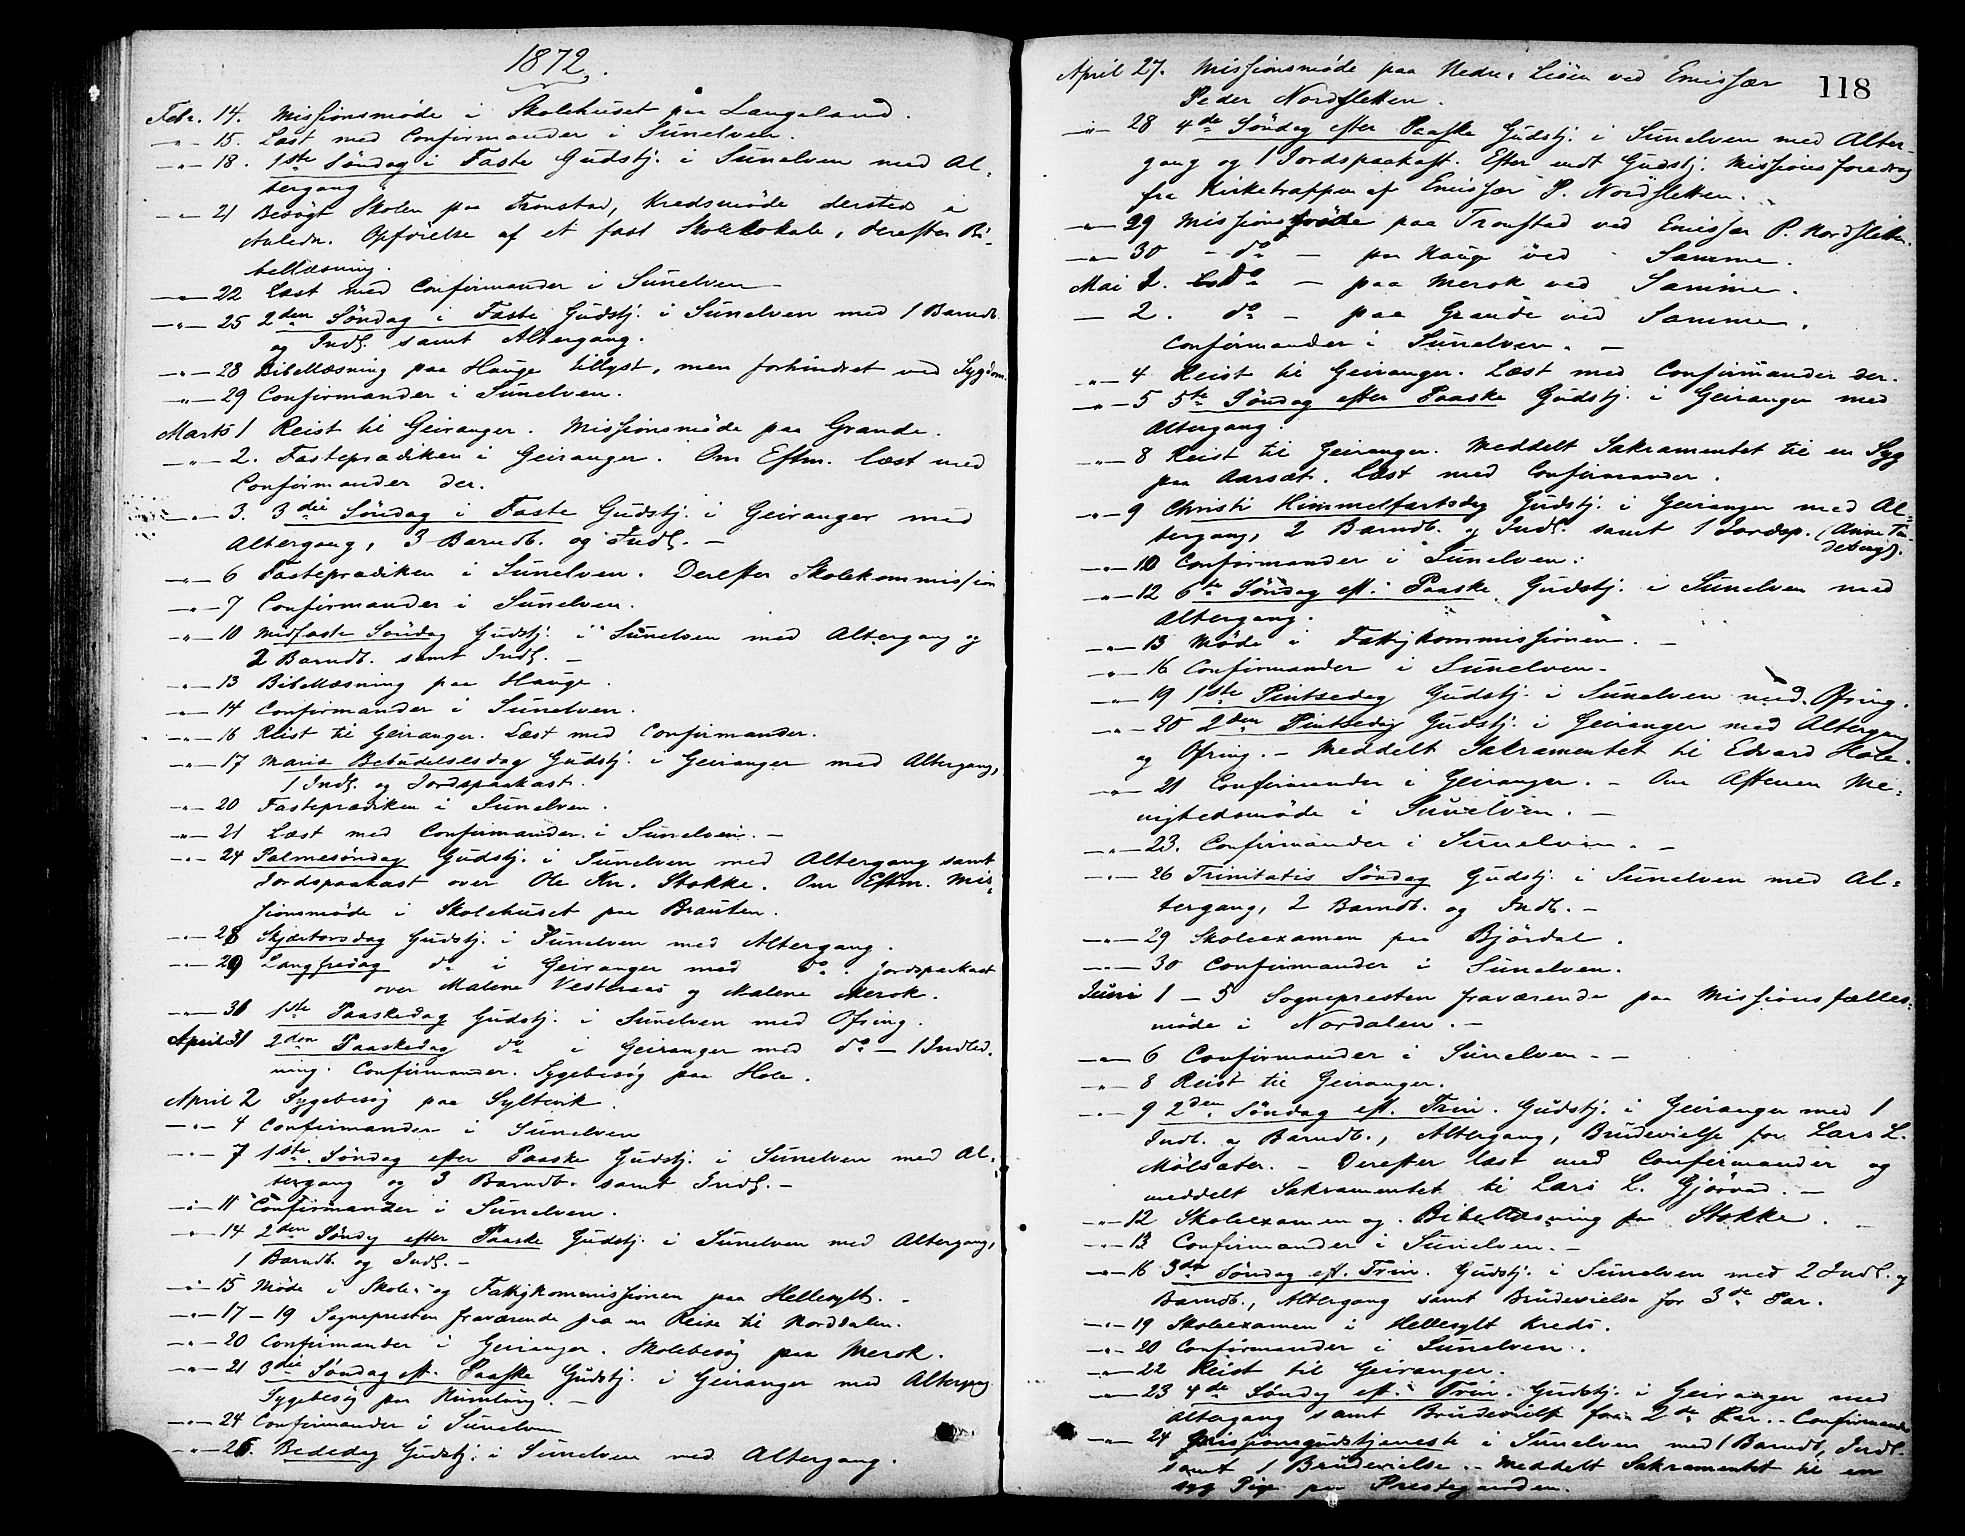 1872.
Febr. 14. Missionsmøde i Skolehuset paa Langeland.
—"— 15. Læst med Confirmander i Sunelven.
—"— 18. 1ste Søndag i Faste Gudstj. i Sunelven med Al-
tergang
—"— 21 Besøgt Skolen paa Tronstad, Kredsmøde dersteds i
Anledn. Opførelse af et fast Skolelokale, derefter Bi-
bellæsning.
—"— 22 Læst med Confirmander i Sunelven
—"— 25 2den Søndag i Faste Gudstj. i Sunelven med 1 Barndb.
og Indl. samt Altergang.
—"— 28 Bibellæsning paa Hauge tillyst, men forhindret ved Sygdom.
—"— 29 Confirmander i Sunelven.
Marts 1 Reist til Geiranger. Missionsmøde paa Grande.
—"— 2. Fasteprædiken i Geiranger. Om Eftm. læst med
Confirmander der.
—"— 3. 3die Søndag i Faste Gudstj. i Geiranger med
Altergang, 3 Barndb. og Indl. —
—"— 6 Fasteprædiken i Sunelven. Derefter Skolekommission
—"— 7 Confirmander i Sunelven.
—"— 10 Midfaste Søndag Gudstj. i Sunelven med Altergang og
2 Barndb. samt Indl. —
—"— 13 Bibellæsning paa Hauge.
—"— 14 Confirmander i Sunelven.
—"— 16 Reist til Geiranger. Læst med Confirmander.
—"— 17 Mariæ Bebudelsesdag Gudstj. i Geiranger med Altergang,
1 Indl. og Jordspaakast.
—"— 20 Fasteprædiken i Sunelven.
—"— 21 Læst med Confirmander i Sunelven. —
—"— 24 Palmesøndag Gudstj. i Sunelven med Altergang samt
Jordspaakast over Ole Kn. Stokke. Om Eftm. Mis-
sionsmøde i Skolehuset paa Brauten.
—"— 28 Skjærtorsdag Gudstj. i Sunelven med Altergang.
—"— 29 Langfredag do i Geiranger med do. Jordspaakast
over Malene Vesteraas og Malene Merok.
—"— 31 1ste Paaskedag Gudstj. i Sunelven med Ofring.
April 1 2den Paaskedag do i Geiranger med do — 1 Indled-
ning. Confirmander. Sygebesøg paa Hole.
April 2 Sygebesøg paa Syltevik.
—"— 4 Confirmander i Sunelven
—"— 7 1ste Søndag efter Paaske Gudstj. i Sunelven med Al-
tergang og 3 Barndb. samt Indl. —
—"— 11 Confirmander i Sunelven.
—"— 14 2den Søndg efter Paaske Gudstj. i Sunelven med Altergang,
1 Barndb. og Indl. —
—"— 15 Møde i Skole- og Fattigkommissionen paa Hellesylt. —
—"— 17 — 19 Sognepresten fraværende paa en Reise til Norddalen.
—"— 20 Confirmander i Geiranger. Skolebesøg paa Merok.
—"— 21 3die Søndag eft. Paaske Gudstj. i Geiranger med Altergang
Sygebesøg paa Humlung. —
—"— 24 Confirmander i Sunelven
—"— 26. Bededag Gudstj. i Sunelven med Altergang.
118
April 27. Missionsmøde paa Nedre Liøen ved Emissær
Peder Nordsletten.
—"— 28 4de Søndag efter Paaske Gudstj. i Sunelven med Alter-
gang og 1 Jordspaakast. Efter endt Gudstj. Missionsforedrag
fra Kirketrappen af Emissær P. Nordsletten.
—"— 29 Missionsmøde paa Tronstad ved Emissær P. Nordsletten.
—"— 30 — do — paa Haug ved Samme.
Mai 1. do — paa Merok ved Samme.
— 2. do — paa Grande ved Samme.
Confirmander i Sunelven. —
—"— 4 Reist til Geiranger. Læst med Confirmander der.
—"— 5 5te Søndag efter Paaske Gudstj. i Geiranger med
Altergang.
—"— 8 Reist til Geiranger. Meddelt Sakramentet til en Syg
paa Aarsæt. Læst med Confirmander.
—"— 9 Christi Himmelfartsdag Gudstj. i Geiranger med Al-
tergang, 2 Barndb. og Indl. samt 1 Jordsp. (Anne
—"— 10 Confirmander i Sunelven.
—"— 12 6te Søndag eft. Paaske Gudstj. i Sunelven med
Altergang.
—"— 13 Møde i Fattigkommissionen. —
—"— 16 Confirmander i Sunelven.
—"— 19 1ste Pintsedag Gudstj. i Sunelven med Ofring.
—"— 20 2den Pintsedag Gudstj. i Geiranger med Altergang
og Ofring. — Meddelt Sakramentet til Edvard Hole.
—"— 21 Confirmander i Geiranger. — Om Aftenen Me-
nighedsmøde i Sunelven. —
—"— 23. Confirmander i Sunelven. —
—"— 26 Trinitatis Søndag Gudstj. i Sunelven med Al-
tergang, 2 Barndb. og Indl. —
—"— 29 Skoleexamen paa Bjørdal.
—"— 30 Confirmander i Sunelven.
Juni 1 — 5 Sognepresten fraværende paa Missionsfælles-
møde i Nordalen. —
—"— 6 Confirmander i Sunelven. —
—"— 8 Reist til Geiranger.
—"— 9 2den Søndag eft. Trin. Gudstj. i Geiranger med 1
Indl. og Barndb., Altergang, Brudevielse for Lars L.
Mølsæter. — Derefter læst med Confirmander og
meddelt Sakramentet til Lars L. Gjørvad. —
—"— 12 Skoleexamen og Bibellæsning paa Stokke. —
—"— 13 Confirmander i Sunelven. —
—"— 16 3die Søndag eft. Trin. Gudstj. i Sunelven med 2 Indl. og
Barndb., Altergang samt Brudevielse for 3de Par.
—"— 19 Skoleexamen i Hellesylt Kreds.
—"— 20 Confirmander i Sunelven.
—"— 22 Reist til Geiranger.
—"— 23 4de Søndag eft. Trin. Gudstj. i Geiranger med
Altergang samt Brudevielse for 2de Par. — Confirmander
—"— 24 Missionsgudstjeneste i Sunelven med 1 Barndb, Indl.
samt 1 Brudevielse. — Meddelt Sakramentet til en
syg Pige paa Prestegaarden.